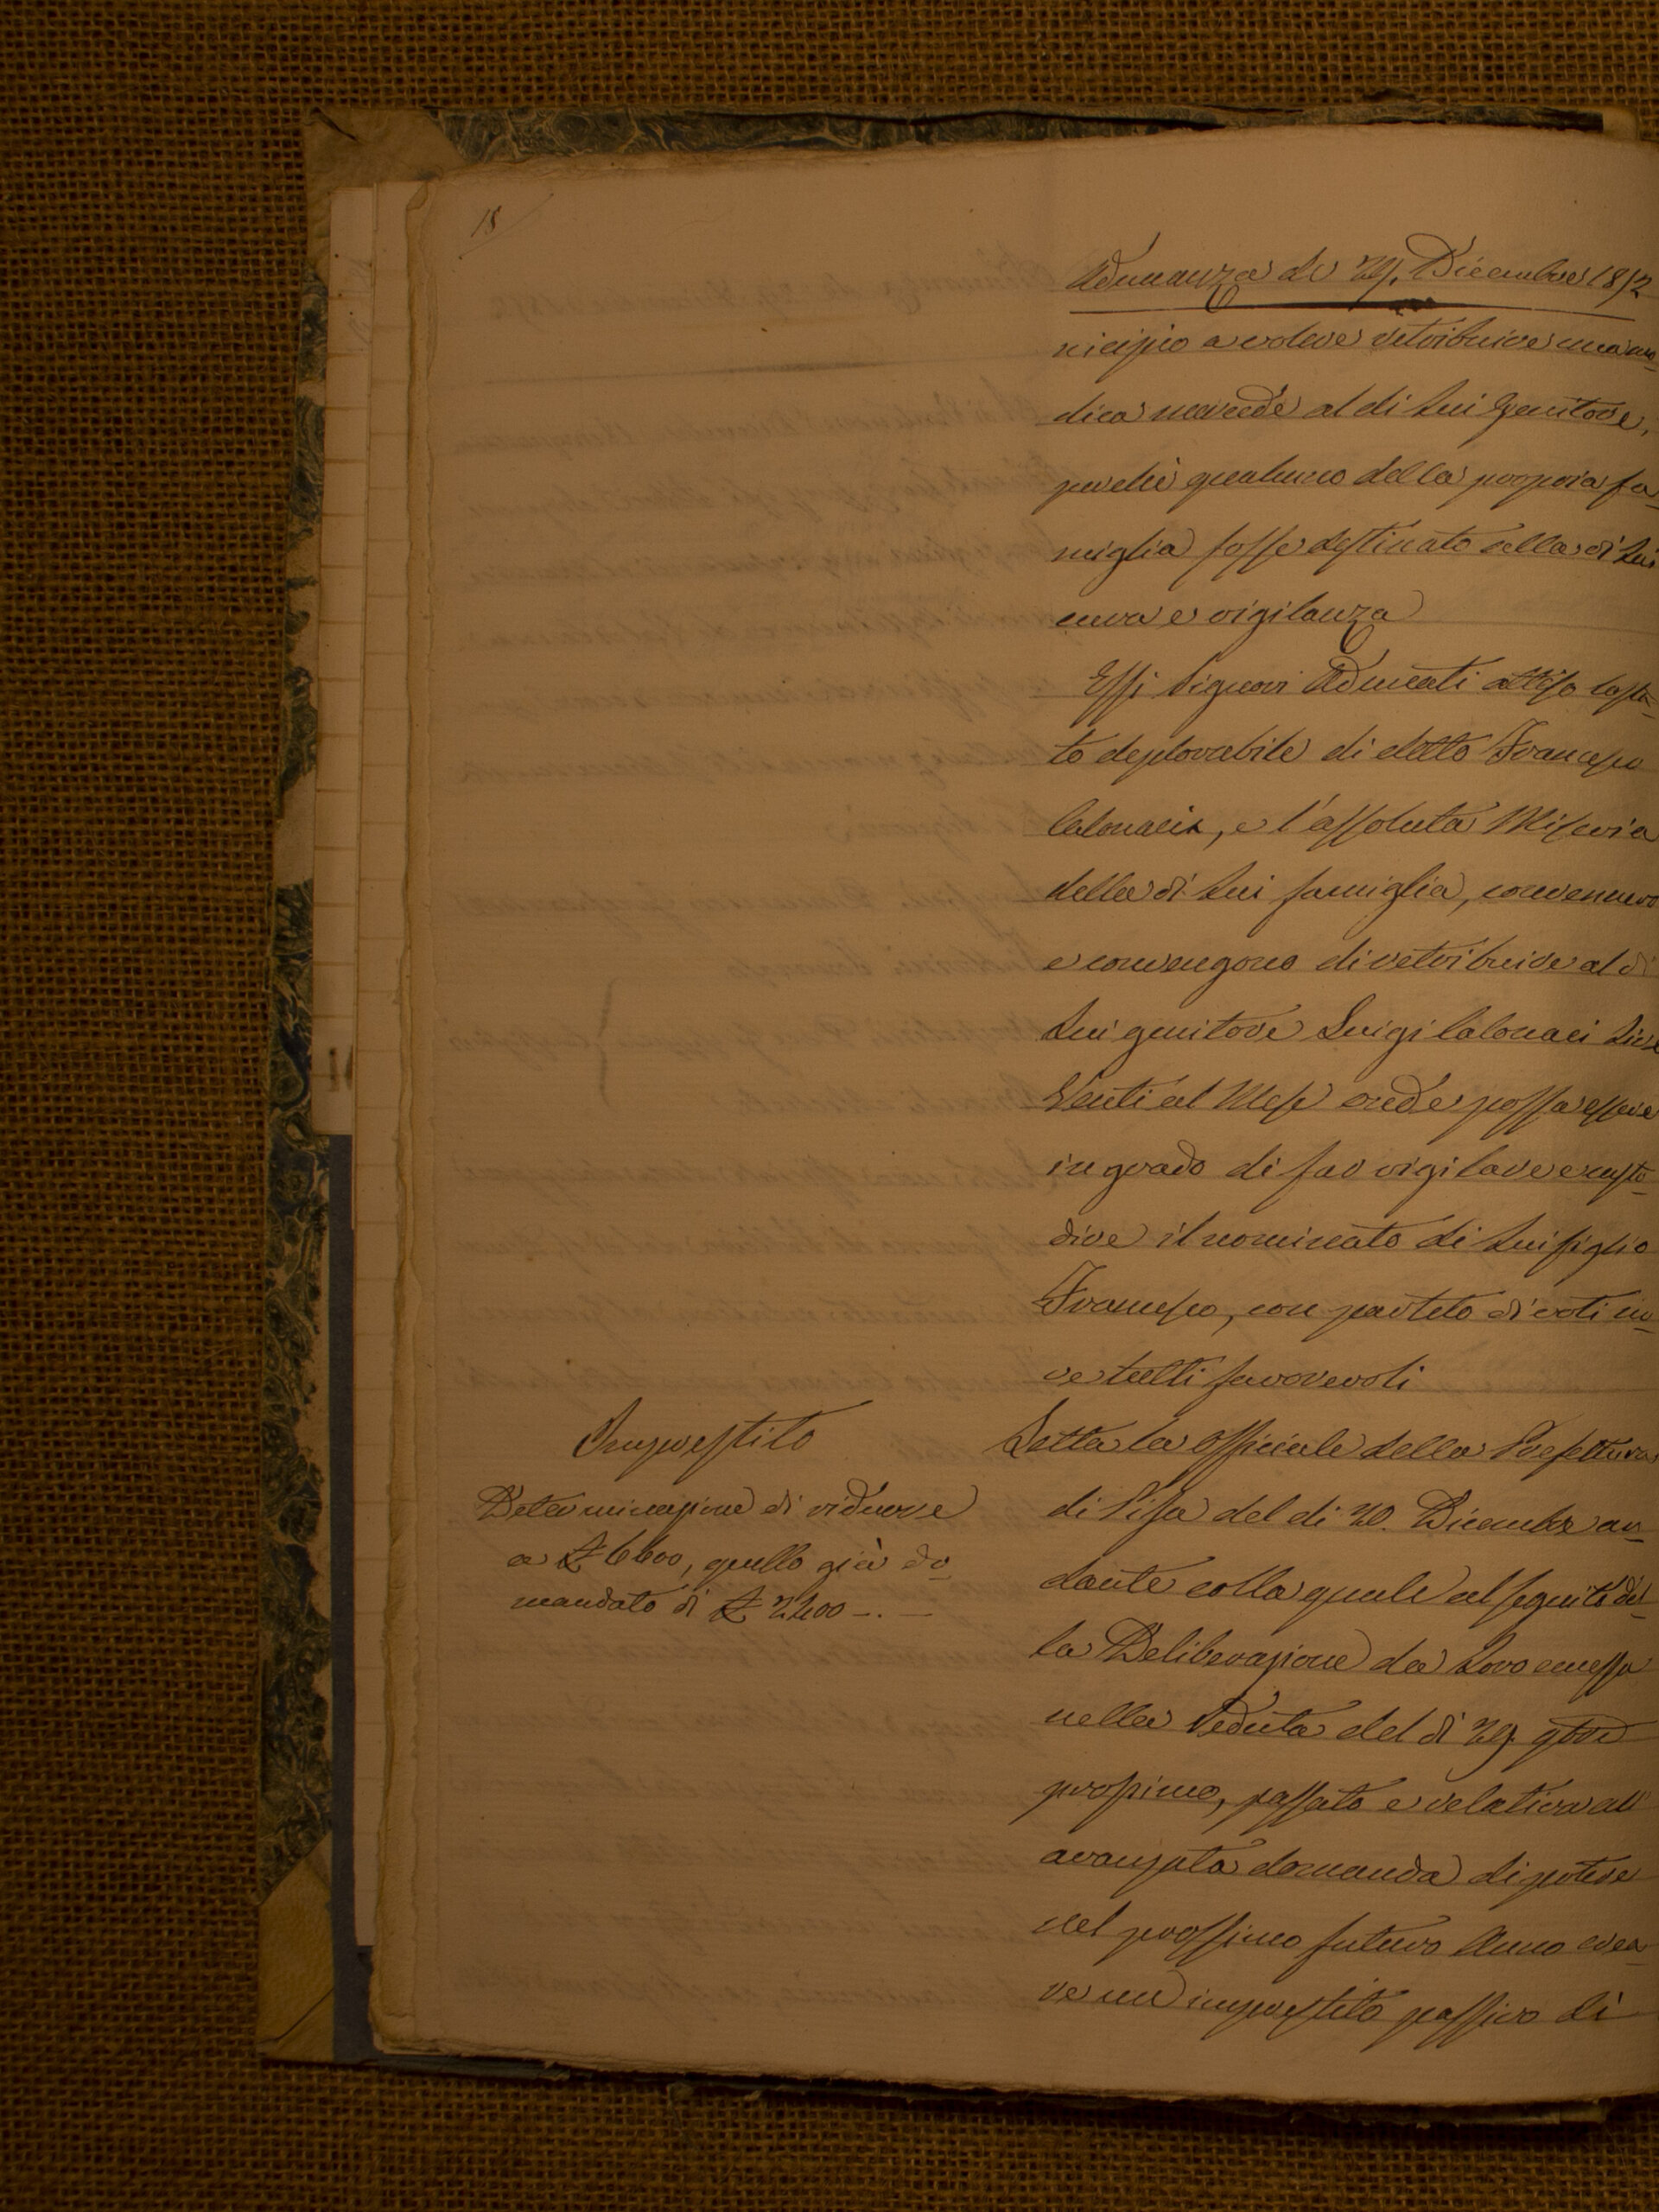 18
Adunanza de 29. Dicembre 1872
nicipio a volere retribuire una mo-
dica mercede al di Lui Genitore,
perchè qualcuno della propria fa-
miglia fosse destinato alla di Lui
cura e vigilanza
Essi Signori Adunati atteso lo sta-
to deplorabile di detto Francesco
Calonaci, e l'assoluta Miseria
della di Lui famiglia, convennero
e convengono di retribuire al di
Lui genitore Luigi Calonaci Lire
Venti al Mese onde possa essere
in grado di far vigilare e custo-
dire il nominato di Lui figlio
Francesco, con partito di voti no-
ve tutti favorevoli
Imprestito
Determinazione di ridurre
a £ 6600, quello già do-
mandato di £ 7200 -. -
Letta la Officiale della Prefettura
di Pisa del di 20. Dicembre an-
dante colla quale al seguito del-
la Deliberazione da Loro emessa
nella Seduta del dì 29. 9bre
prossimo, passato e relativa all'
avanzata domanda di potere
nel prossimo futuro Anno crea-
re un imprestito passivo di